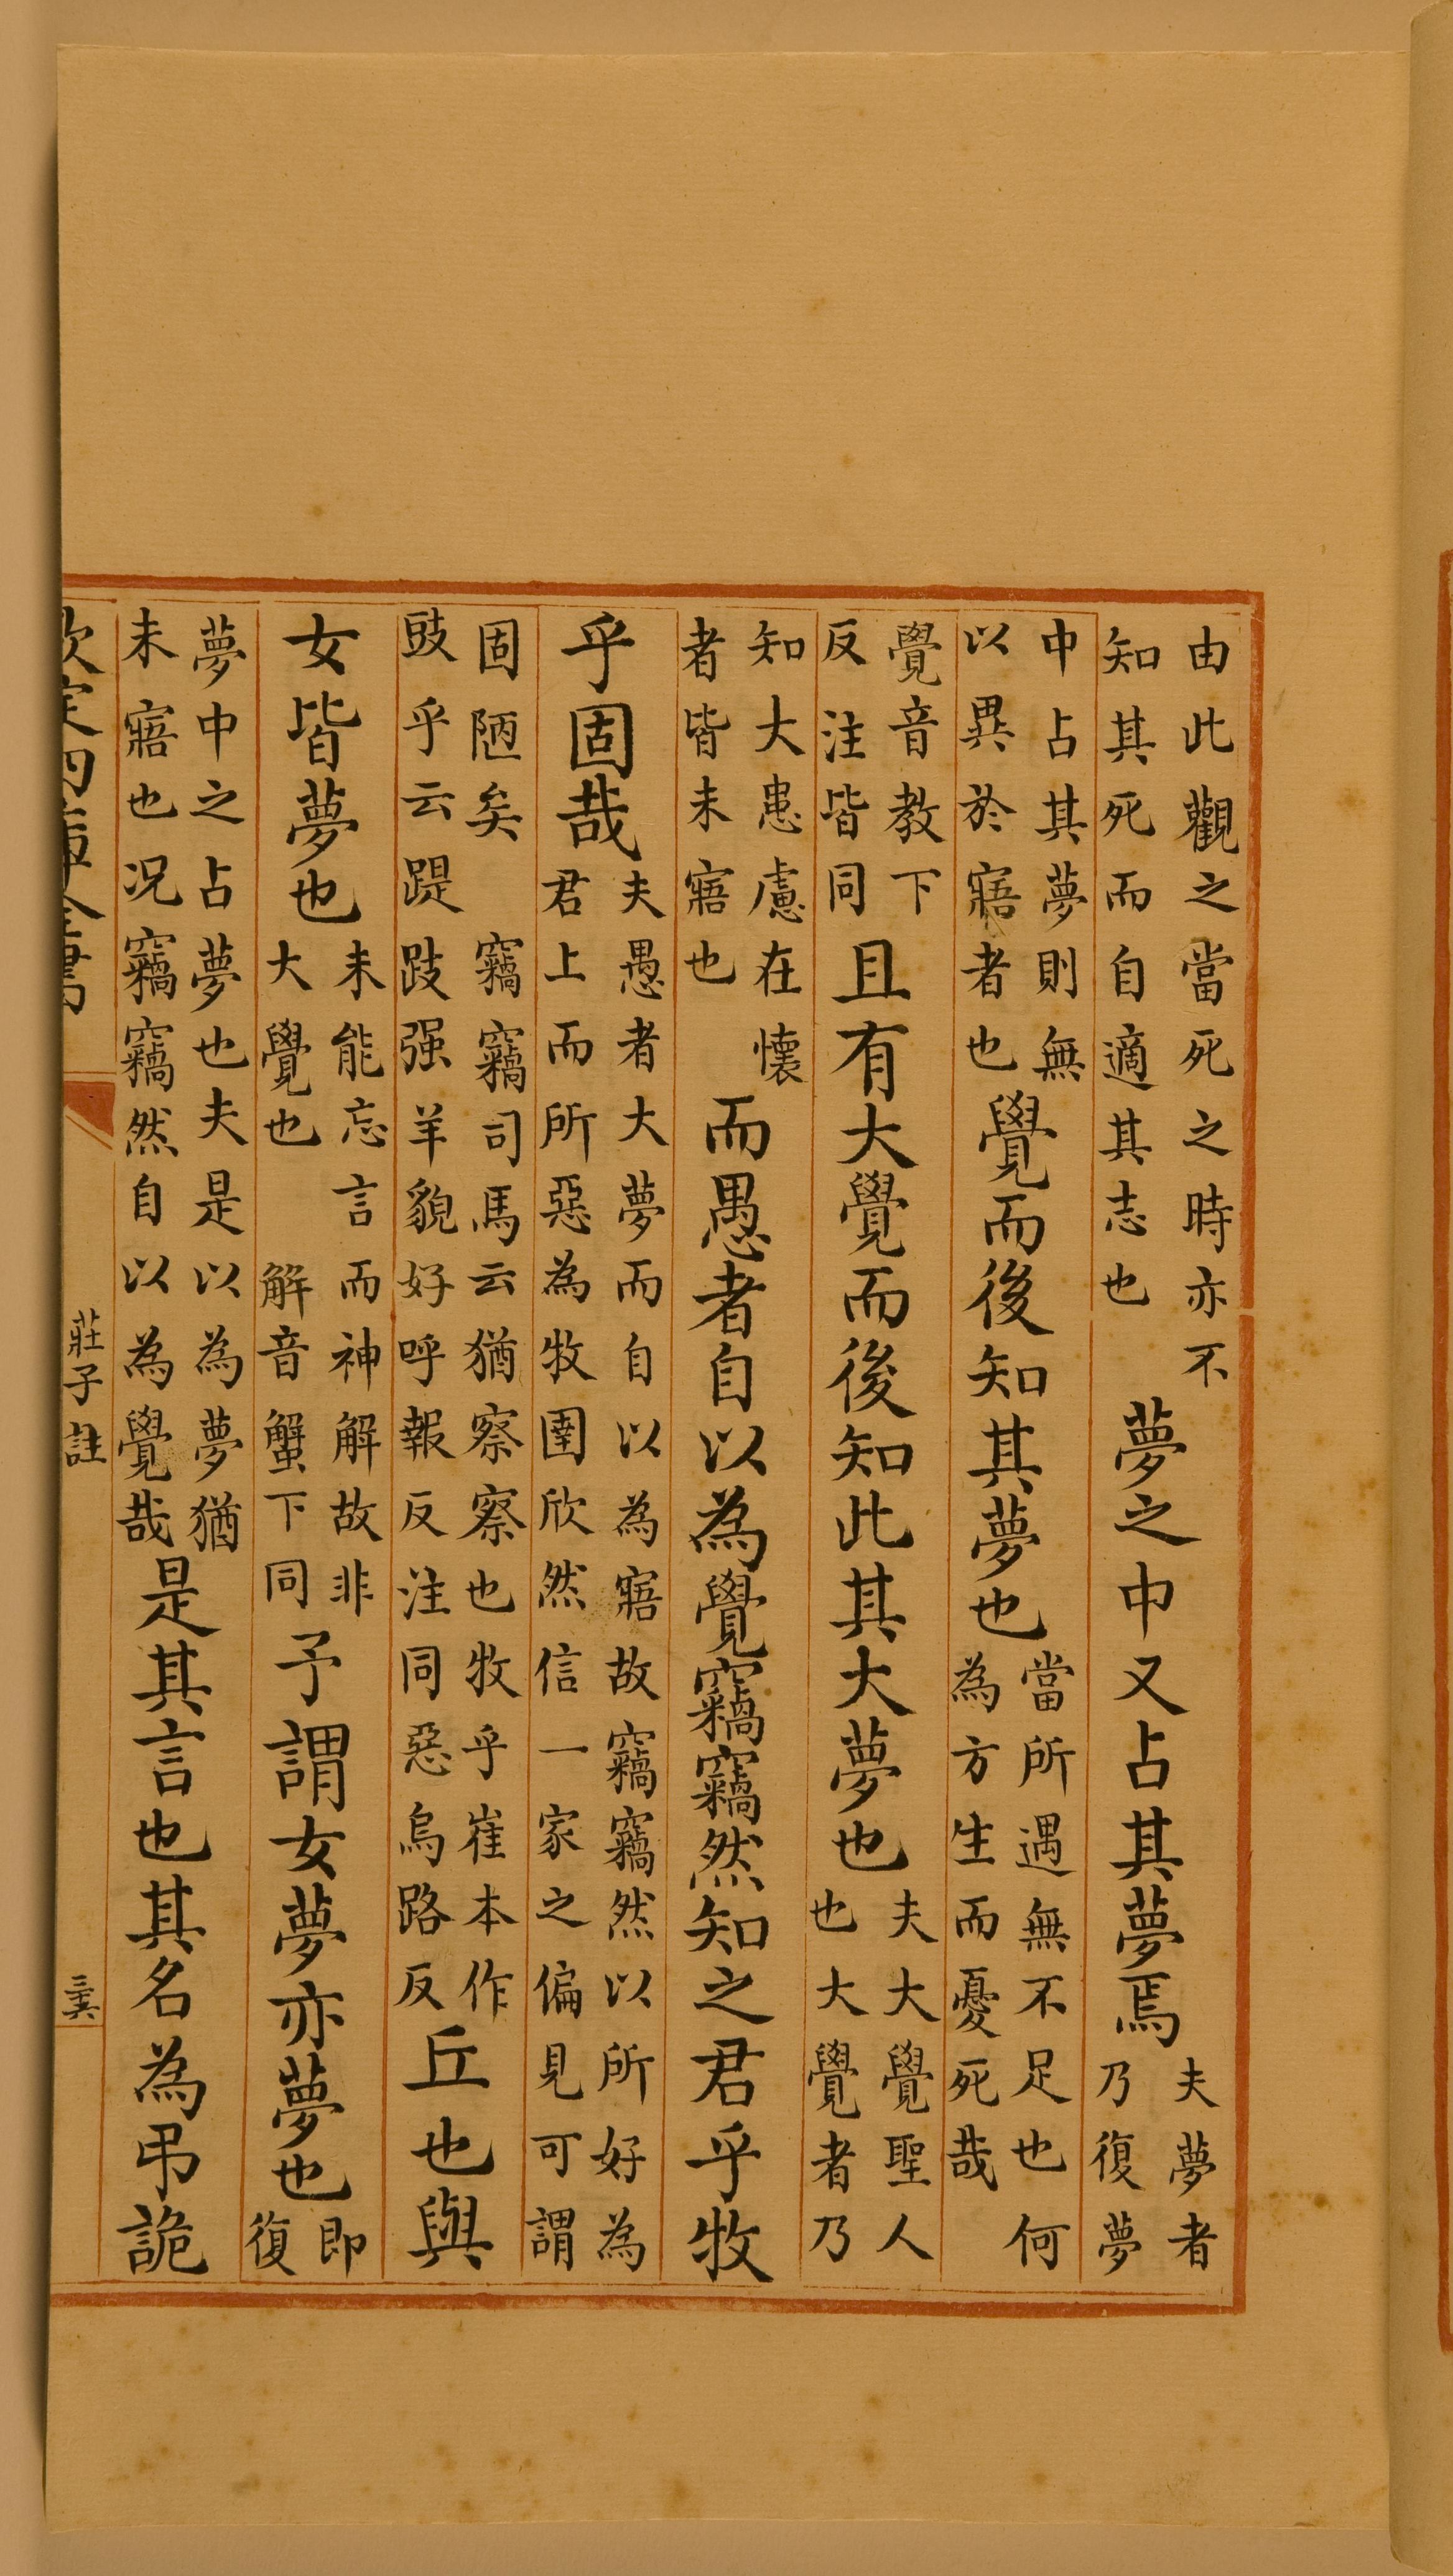 由此觀之當死之時亦不知其死而自適其志也夢之中又占其夢焉夫夢者乃復夢
中占其夢則無以異於寤者也覺而後知其夢也當所遇無不足也何為方生而憂死哉
覺音教下反注皆同且有大覺而後知此其大夢也夫大覺聖人也大覺者乃
知大患慮在懷者皆未寤也而愚者自以為覺竊竊然知之君乎牧
乎固哉夫愚者大夢而自以為寤故竊竊然以所好為君上而所惡為牧圉欣然信一家之偏見可謂
固陋矣竊竊司馬云猶察察也牧乎崔本作豉乎云踶跂强羊貌好呼報反注同惡烏路反丘也與
女皆夢也未能忘言而神解故非大覺也解音蟹下同予謂女夢亦夢也即復
夢中之占夢也夫是以為夢猶未寤也况竊竊然自以為覺哉是其言也其名為弔詭
欽定四庫全書
莊子註
三六